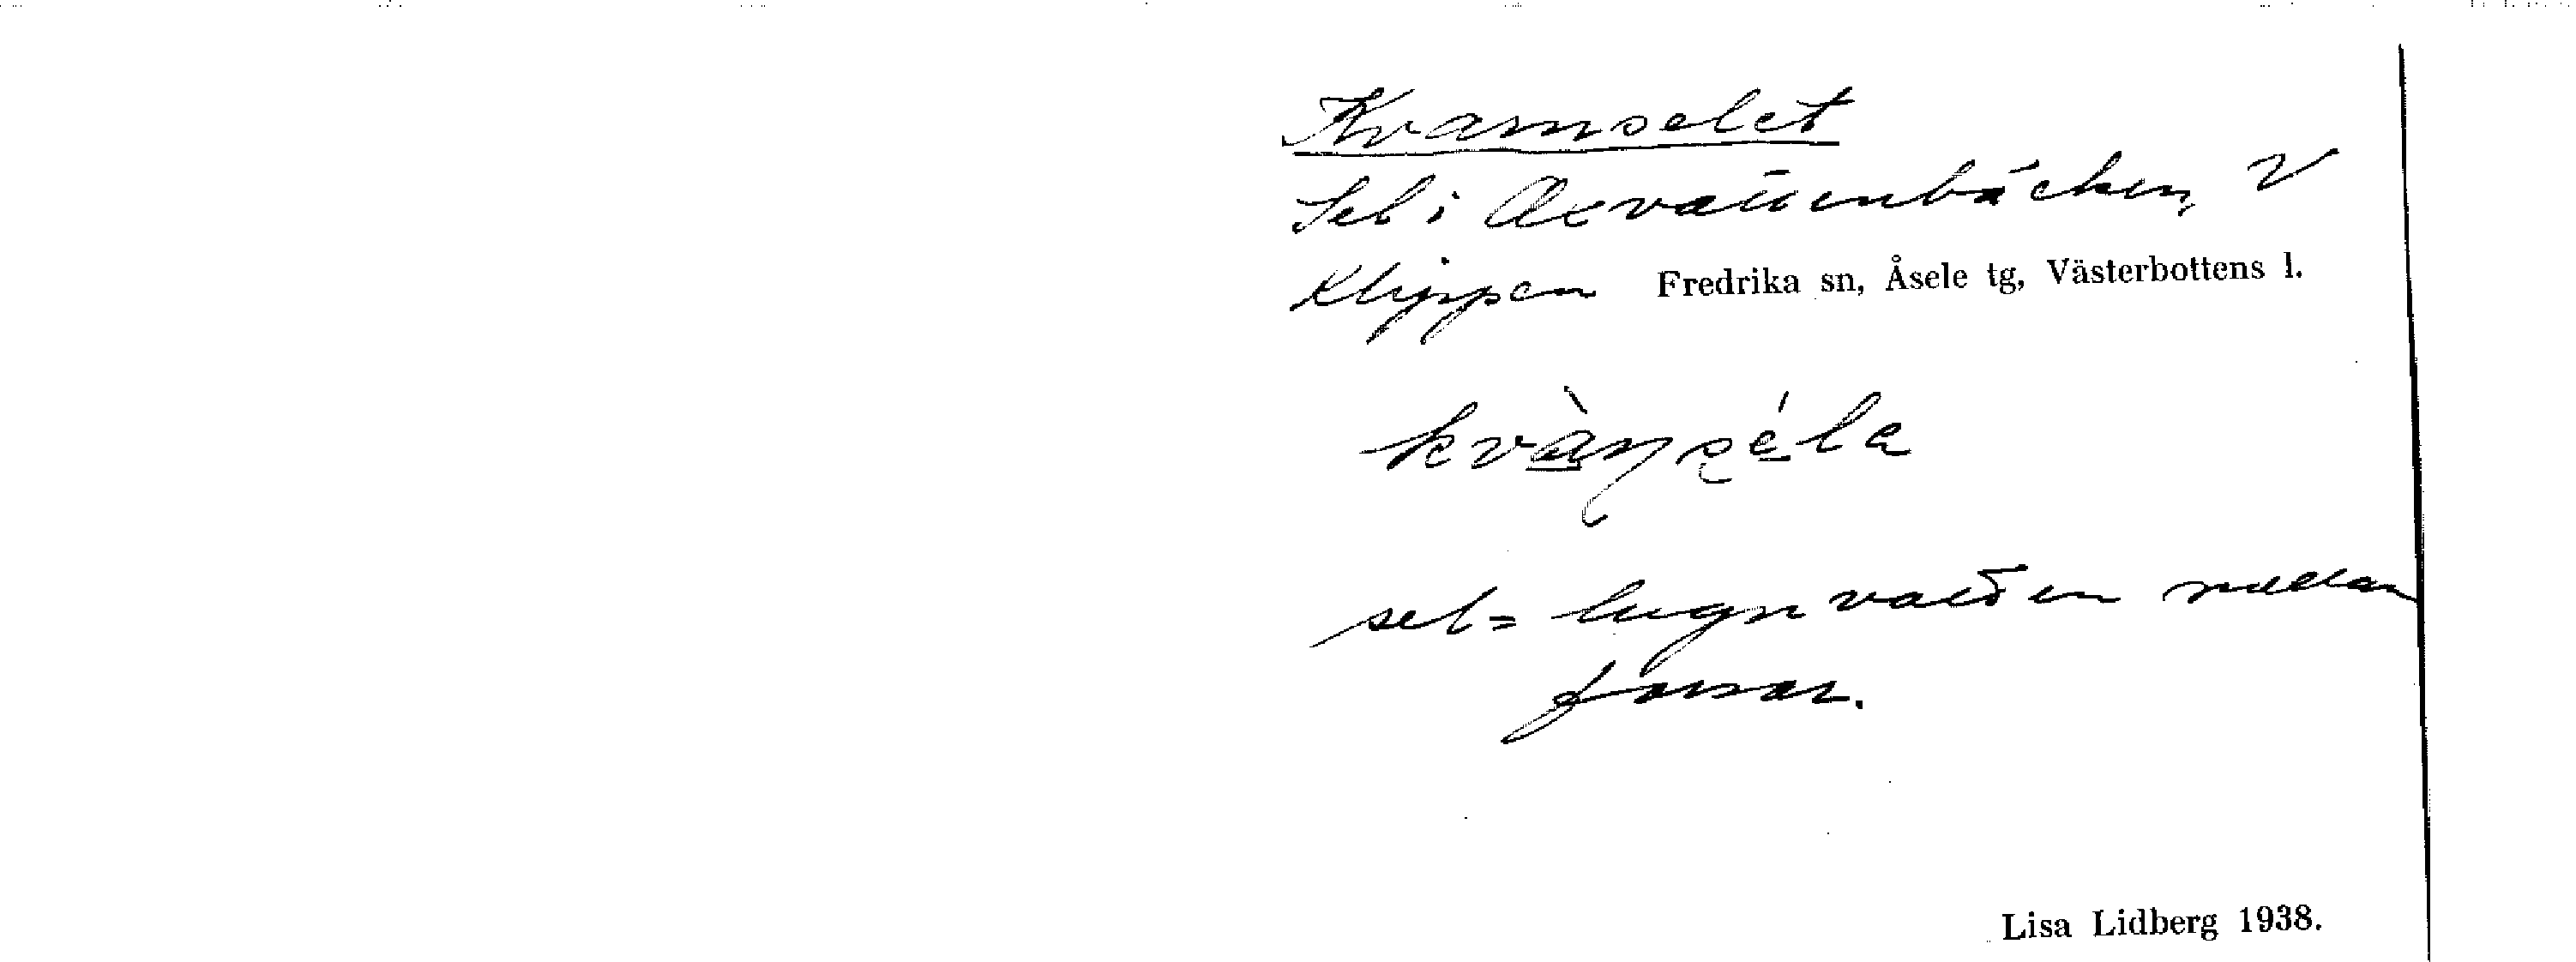 Kvarnselet
Sel i Axvattenbäcken, V
Klippen Fredrika sn, Åsele tg, Västerbottens l.
sel = lugnvatten mellan
forsar.
Lisa Lidberg 1938.